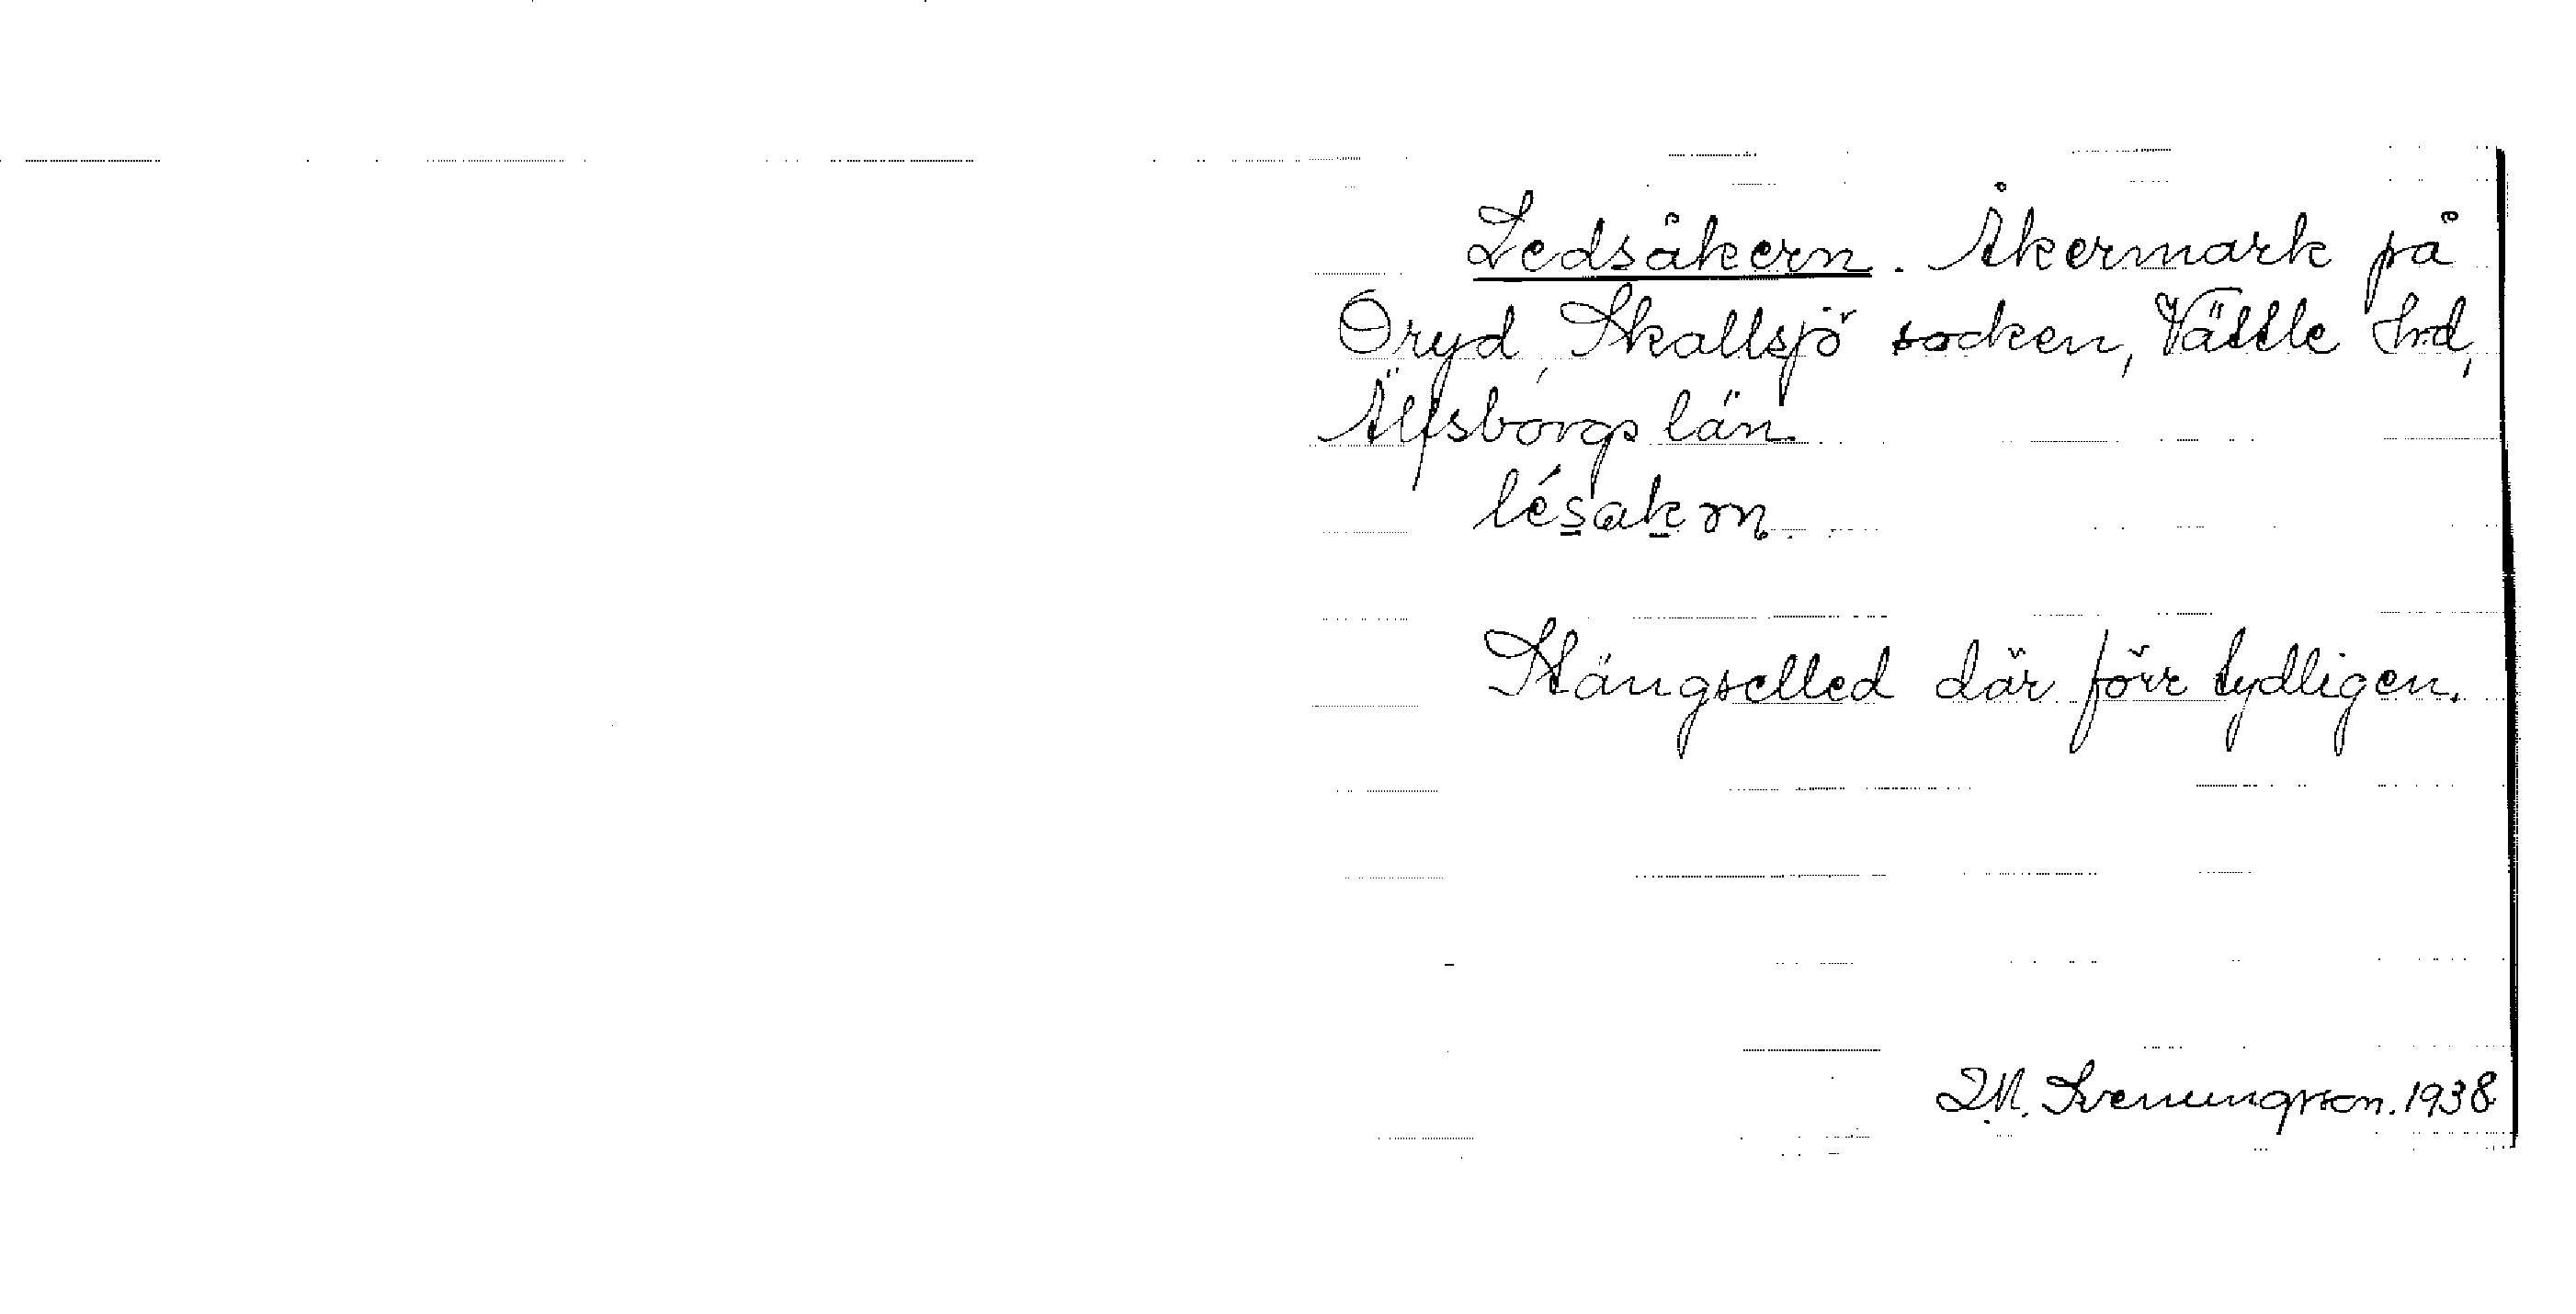 Ledsåkern. Åkermark på
Öryd, Skallsjö socken, Vättle hrd,
Älfsborgs län.
lésakrn.
Stängselled där förr tydligen.
D.M. Svenungsson. 1938